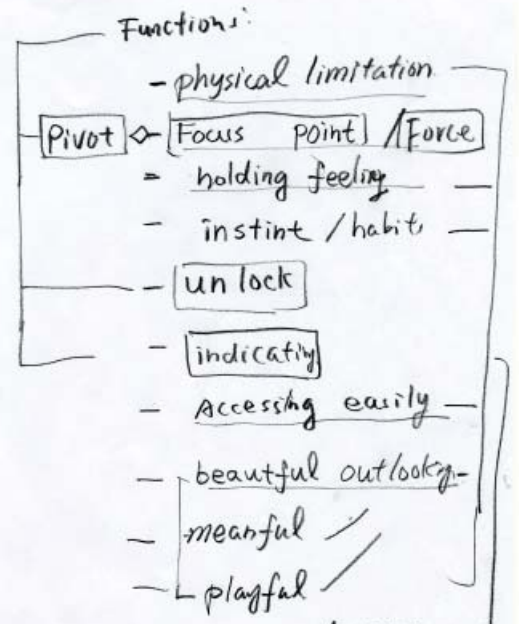 Functions:
- physical limitation
Pivot - Focus point / Force
- holding feeling
- instint / habit
- unlock
- indicating
- Accessing easily
- beautful outlooking
- meanful
- playful